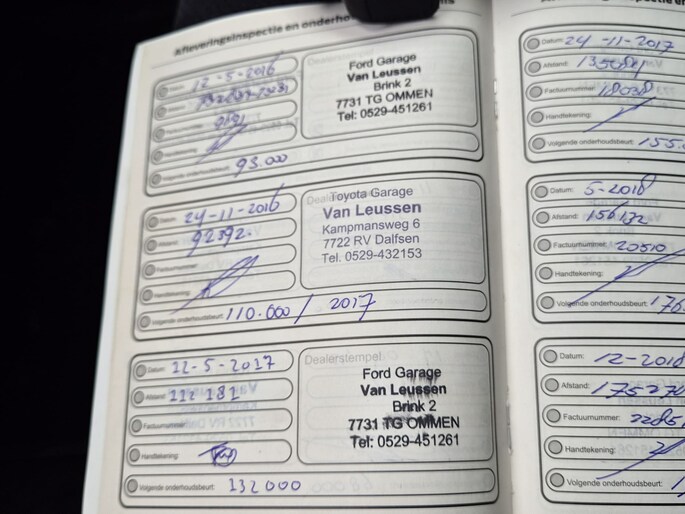 Afleveringsinspectie en onderhou
Datum: 12-5-2016
Afstand:
Factuurnummer:
Handtekening:
Volgende onderhoudsbeurt: 93.000
Dealerstempel
Ford Garage
Van Leussen
Brink 2
7731 TG OMMEN
Tel: 0529-451261
Datum: 24-11-2016
Afstand: 92392.
Factuurnummer:
Handtekening:
Volgende onderhoudsbeurt: 110.000 / 2017
Toyota Garage
Van Leussen
Kampmansweg 6
7722 RV Dalfsen
Tel. 0529-432153
Datum: 22-5-2017
Afstand: 112 181
Factuurnummer:
Handtekening:
Volgende onderhoudsbeurt: 132000
Dealerstempel
Ford Garage
Van Leussen
Brink 2
7731 TG OMMEN
Tel: 0529-451261
Datum: 24-11-2017
Afstand:
Factuurnummer: 18038
Handtekening:
Volgende onderhoudsbeurt: 155.
Datum: 5-2018
Afstand: 156132
Factuurnummer: 20510
Handtekening:
Volgende onderhoudsbeurt: 176.
Datum: 12-2018
Afstand:
Factuurnummer: 2285
Handtekening:
Volgende onderhoudsbeurt: